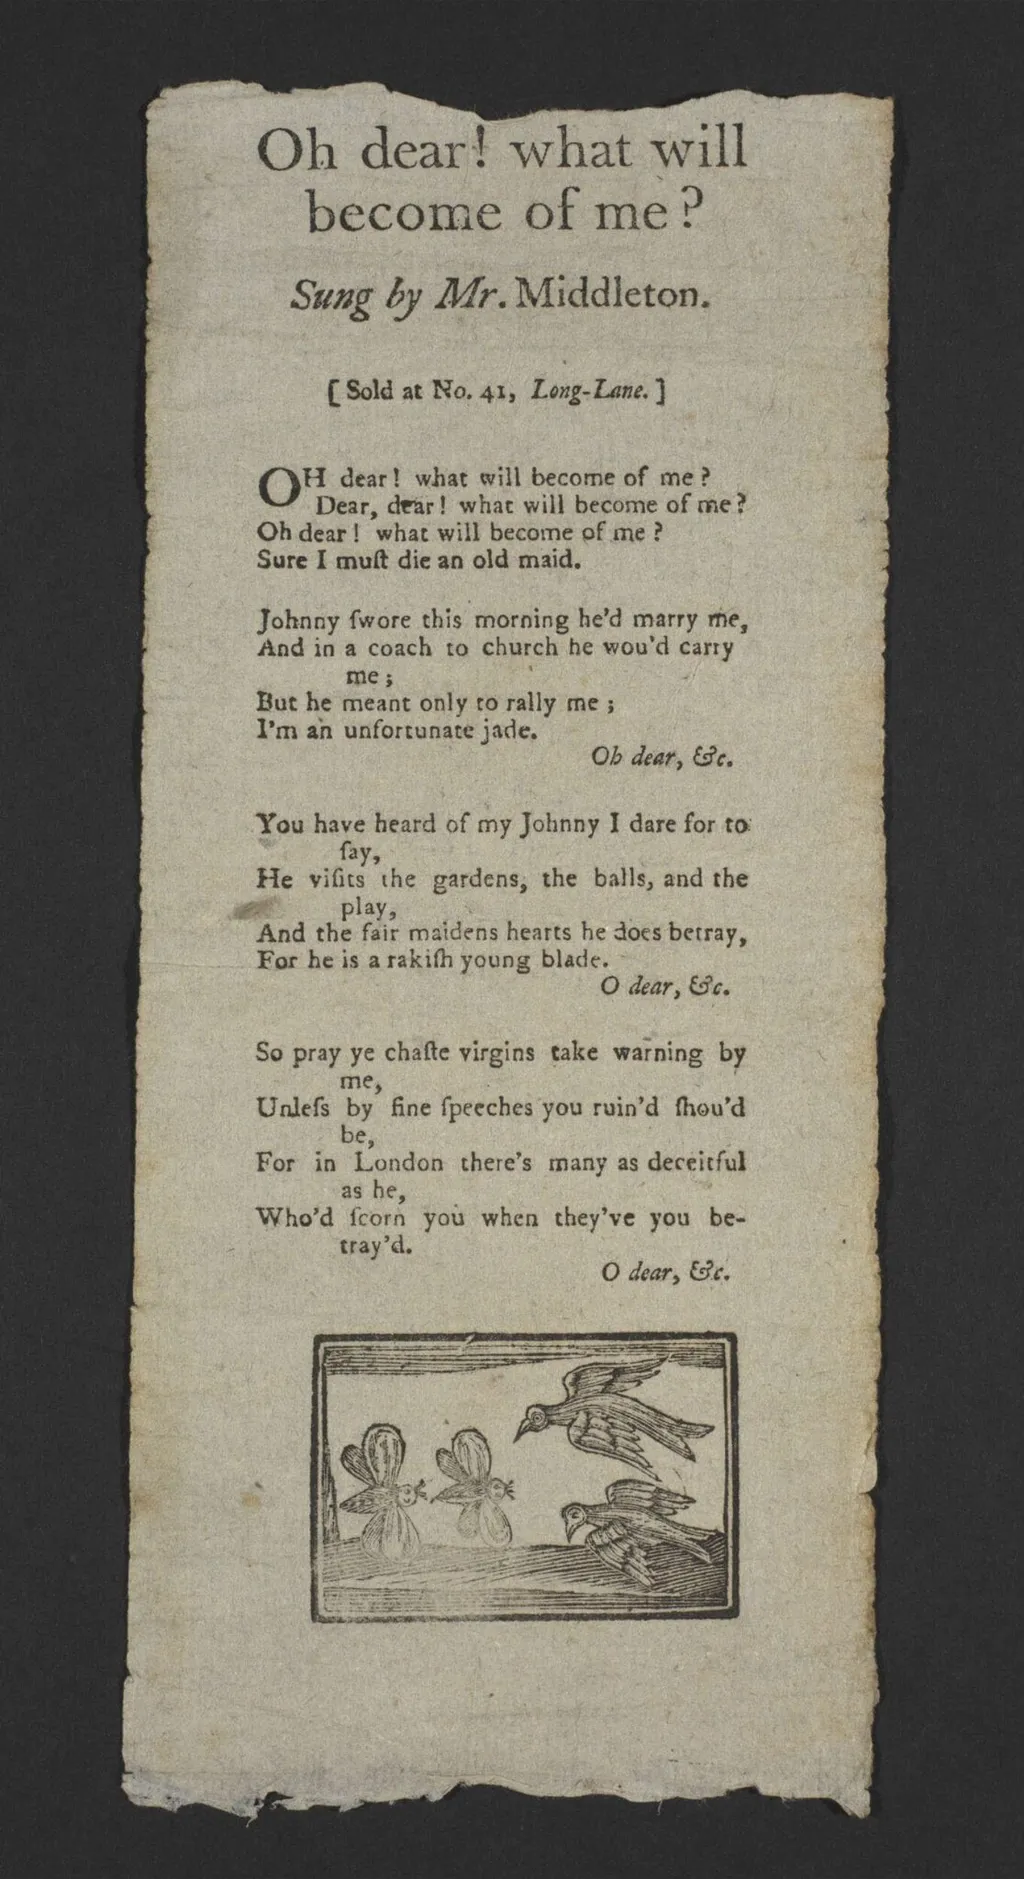 Oh dear! what will
become of me?
Sung by Mr. Middleton.
[ Sold at No. 41, Long-Lane. ]
OH dear! what will become of me?
Dear, dear! what will become of me?
Oh dear! what will become of me?
Sure I muſt die an old maid.
Johnny ſwore this morning he'd marry me,
And in a coach to church he wou'd carry
me;
But he meant only to rally me;
I'm an unfortunate jade.
Oh dear, &c.
You have heard of my Johnny I dare for to
ſay,
He viſits the gardens, the balls, and the
play,
And the fair maidens hearts he does betray,
For he is a rakiſh young blade.
O dear, &c.
So pray ye chaſte virgins take warning by
me,
Unleſs by fine ſpeeches you ruin'd ſhou'd
be,
For in London there's many as deceitful
as he,
Who'd ſcorn you when they've you be-
tray'd.
O dear, &c.